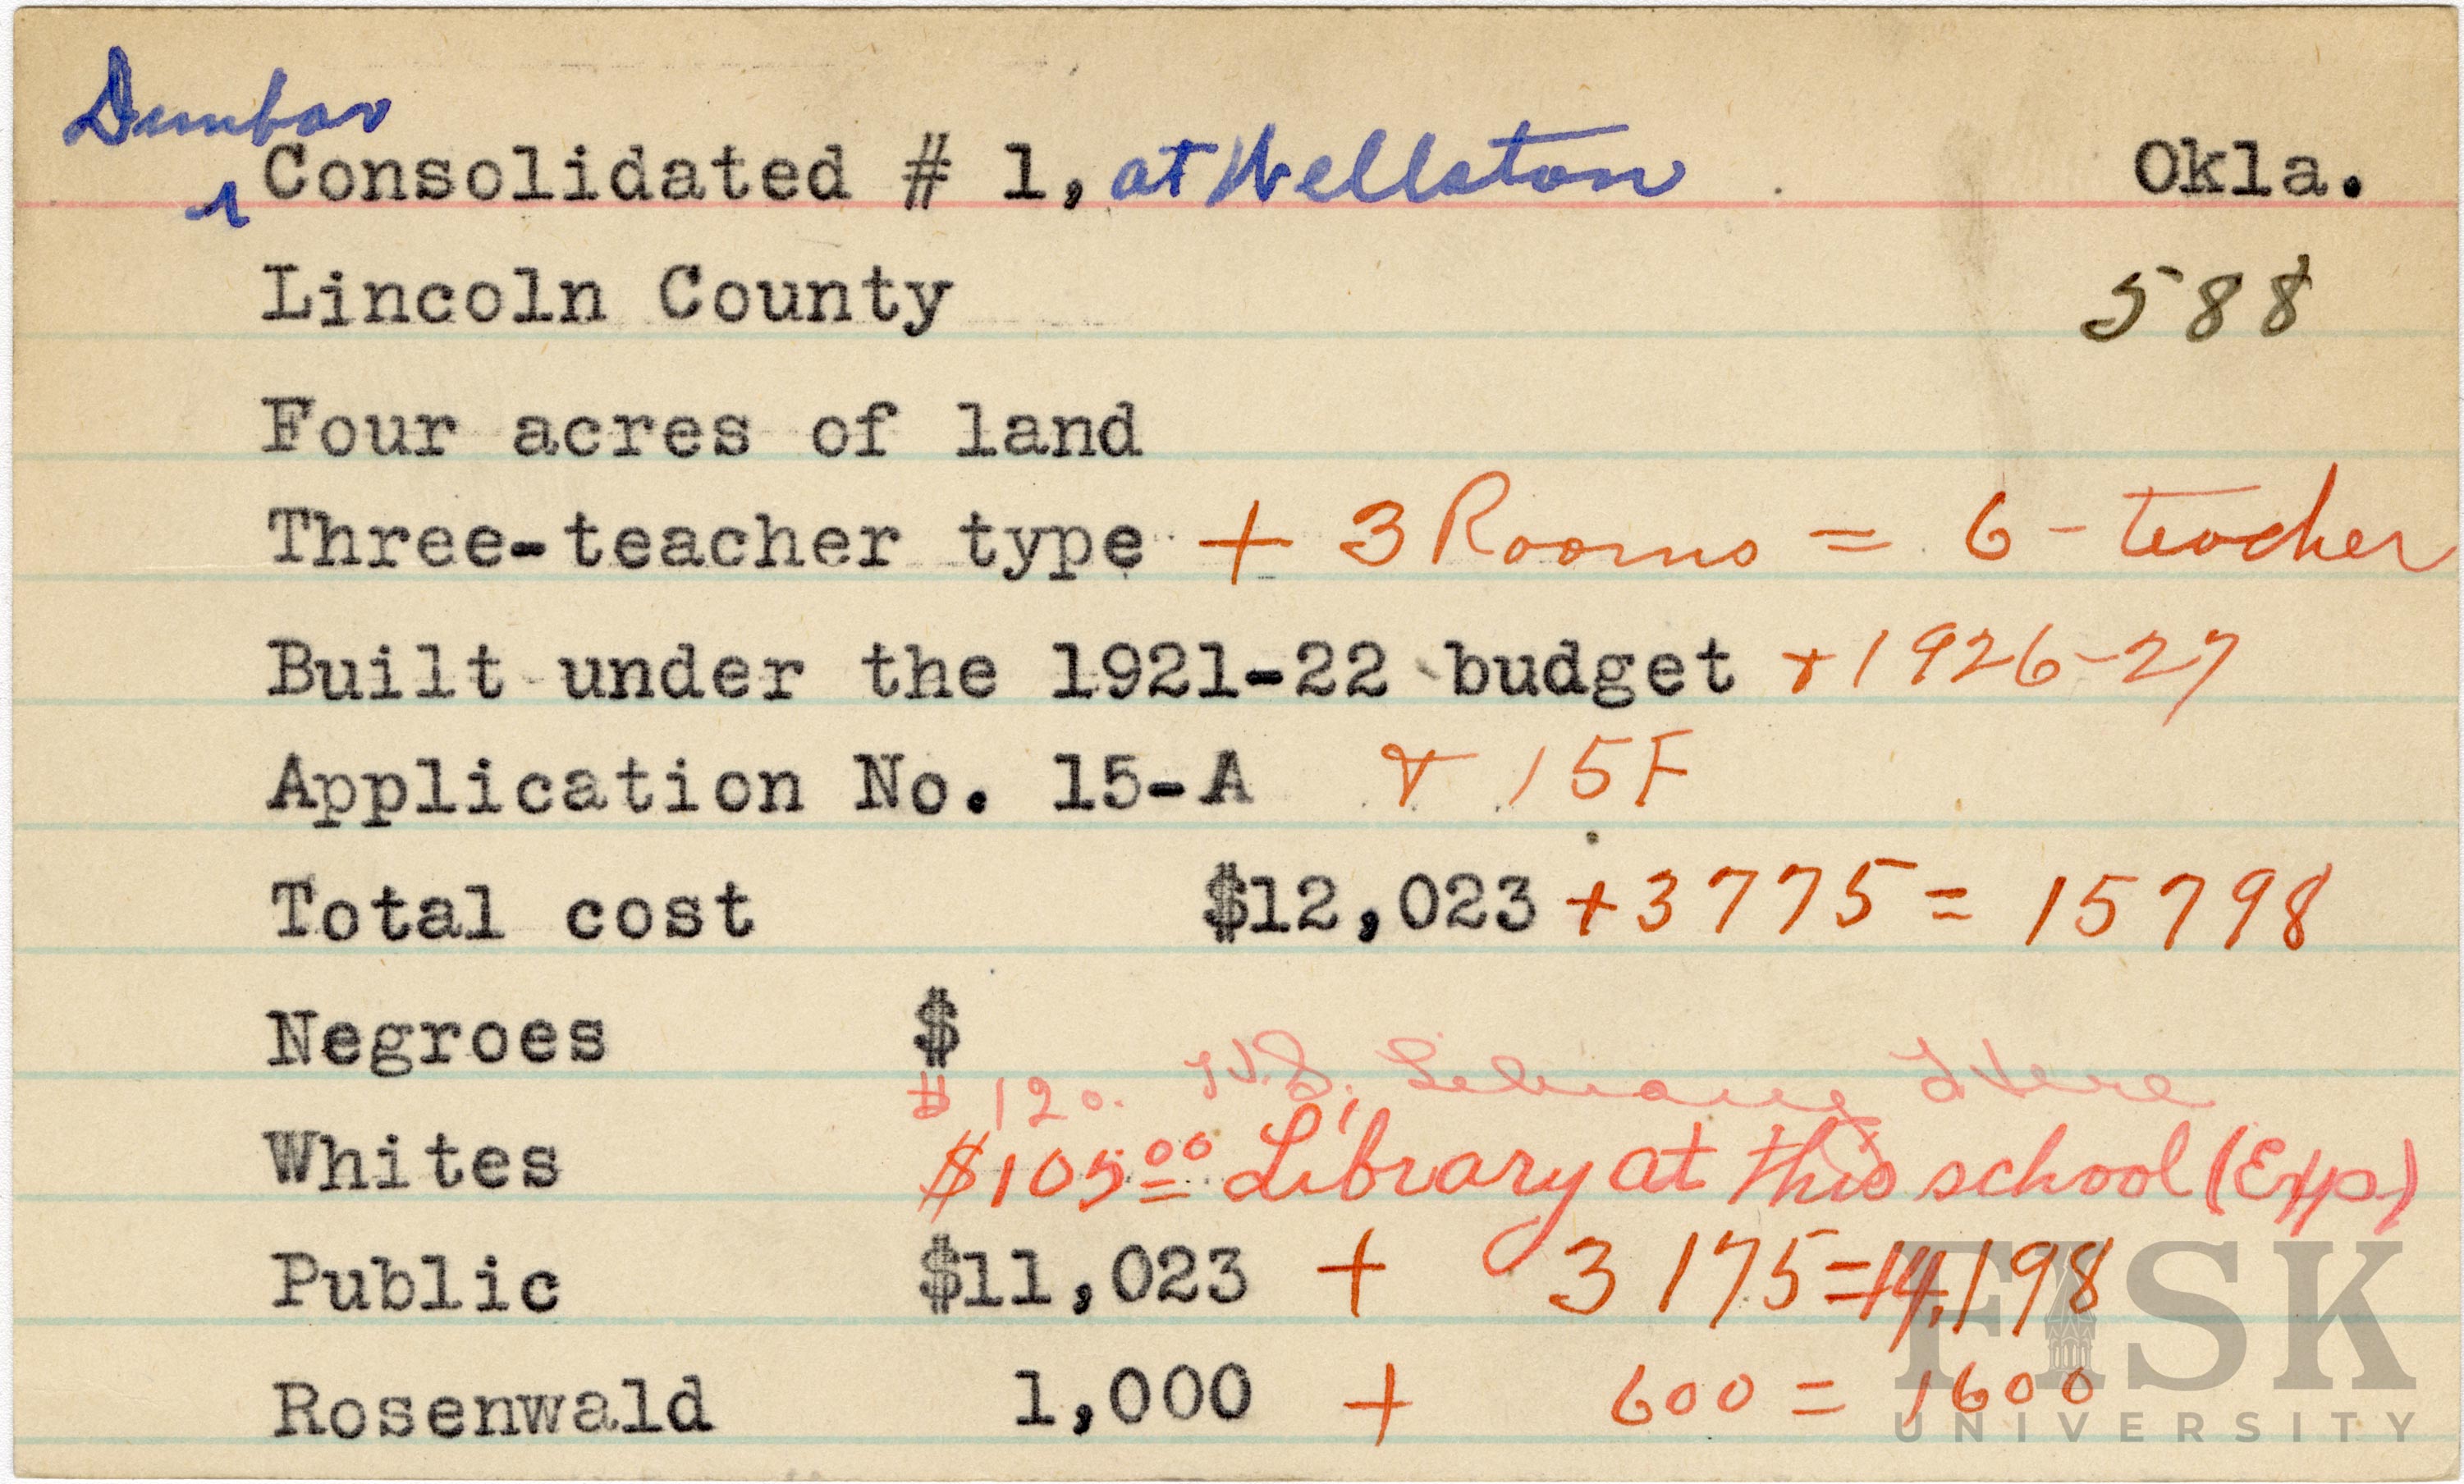 Dunbar
Consolidated # 1, at Wellston Okla.
Lincoln County 588
Four acres of land
Three-teacher type + 3 Rooms = 6-teacher
Built under the 1921-22 budget + 1926-27
Application No. 15-A + 15F
Total cost $12,023 + 3775 = 15798
Negroes $
$120. H.S. Library Here
Whites $105.00 Library at this school (Exp)
Public $11,023 + 3175 = 14,198
Rosenwald 1,000 + 600 = 1600
FISK
UNIVERSITY